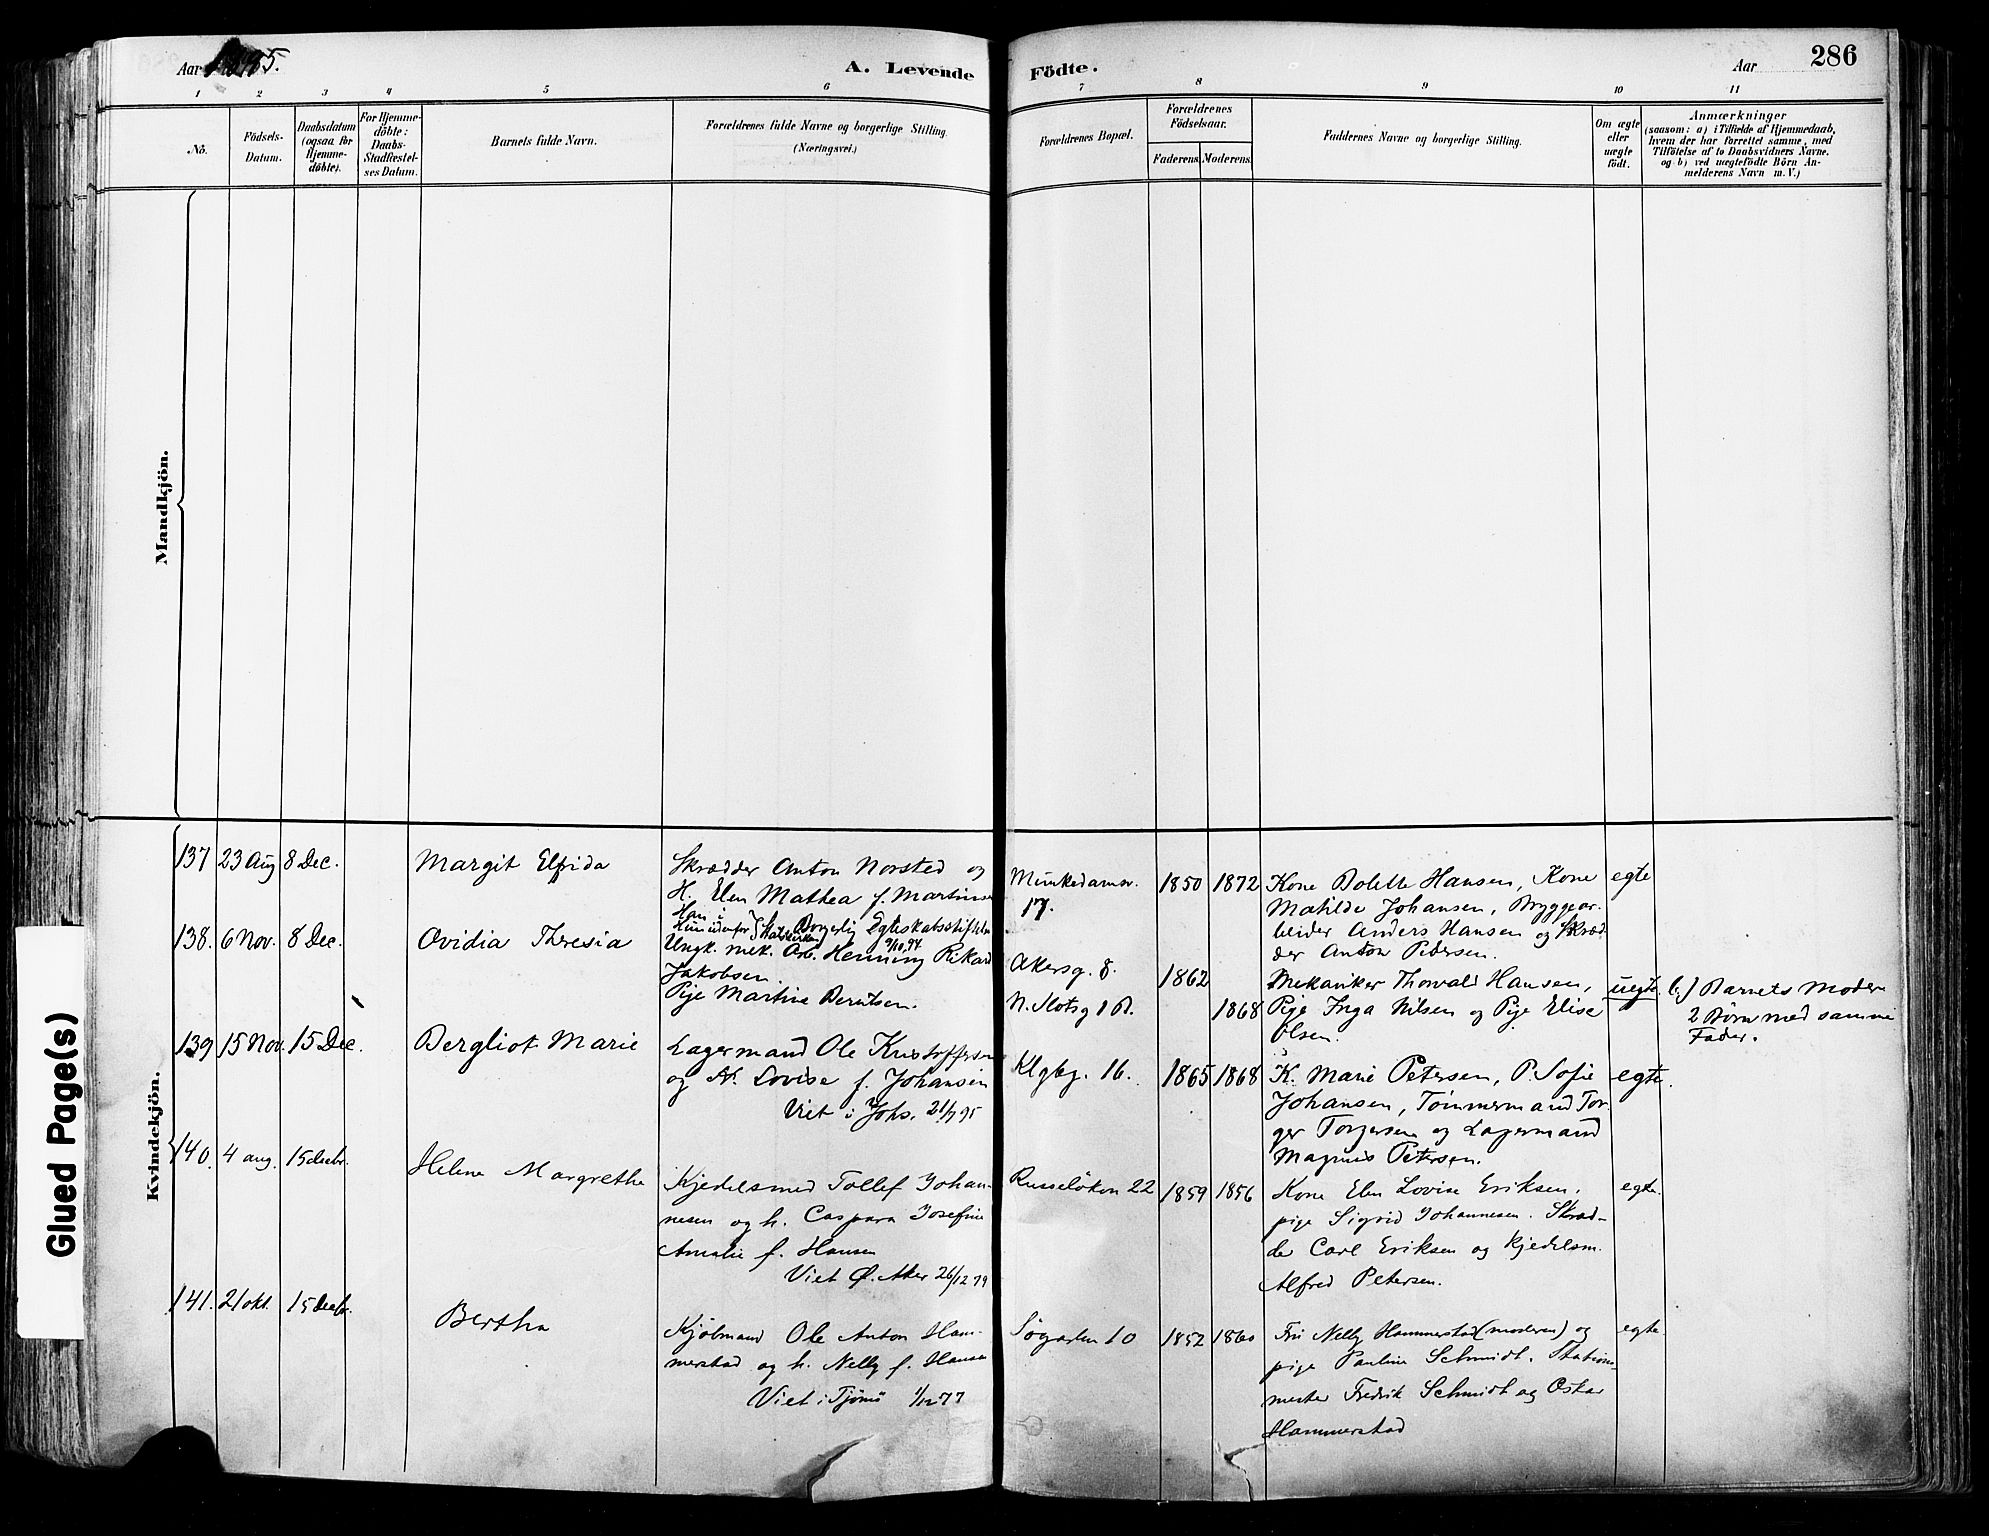 Aar 1895.
A. Levende
Födte.
Aar
286
1
2
3
4
5
6
7
8
9
10
11
No.
Födsels-
Datum.
Daabsdatum
(ogsaa for
Hjemme-
döbte).
For Hjemme-
döbte:
Daabs-
Stadfestel-
ses Datum.
Barnets fulde Navn.
Forældrenes fulde Navne og borgerlige Stilling.
(Næringsvei.)
Forældrenes Bopæl.
Forældrenes
Födselsaar.
Faderens.
Moderens.
Faddernes Navne og borgerlige Stilling.
Om ægte
eller
uægte
födt.
Anmærkninger
(saasom: a) i Tilfælde af Hjemmedaab,
hvem der har forrettet samme, med
Tilföielse af to Daabsvidners Navne.
og b) ved uægtefödte Börn An-
melderens Navn m. V.)
Mandkjön.
Kvindekjön.
Glued Page(s)
137 23 Aug 8 Dec.
Margit Elfrida
Skrædder Anton Norsted og
H. Elen Mathea f. Martins
Han i
Hun udenfor Statskirken Borgerlig Egteskabsstiftelse
9/10.94
Munkedamsv.
17.
1850 1872
Kone Bolette Hansen, Kone
Matilde Johansen, Bryggear-
beider Anders Hansen og Skræd-
der Anton Pedersen.
egte
138. 6 Nov. 8 Dec.
Ovidia Theresia
Ungk. mek. Arb. Henning Rikard
Jakobsen.
Pige Martine Berntsen.
Akersg. 8.
N. Slotsg 1 B.
1862
1868
Mekaniker Thorvald Hansen,
Pige Inga Nilsen og Pige Elise
Olsen.
uegte.
b.) Barnets Moder
2 Børn med samme
Fader.
139 15 Nov. 15 Dec.
Bergliot Marie
Lagermand Ole Kristoffersen
og H. Lovise f. Johansen
Viet i Johs. 21/7 95
Klgbg. 16.
1865 1868
K. Marie Petersen, P. Sofie
Johansen, Tömmermand Tor-
ger Torgersen og Lagermand
Magnus Petersen.
egte.
140. 4 aug. 15 decbr.
Helene Margrethe
Kjedelsmed Tollef Johan-
nesen og h. Caspara Josefine
Amalie f. Hansen
Viet Ø. Aker 26/12 79
Russeløkvn 22
1859 1856
Kone Elen Lovise Eriksen,
pige Sigrid Johannesen. Skræd-
der Carl Eriksen og Kjedelsm.
Alfred Petersen.
egte.
141. 21 okt. 15 decbr.
Bertha
Kjøbmand Ole Anton Ham-
merstad og h. Nelly f. Hansen
Viet i Tjømø 1/12 77
Søgaden 10
1852 1860
Fru Nelly Hammerstad (moderen) og
pige Pauline Schmidt. Stations-
mester Fredrik Schmidt og Oskar
Hammerstad
egte.